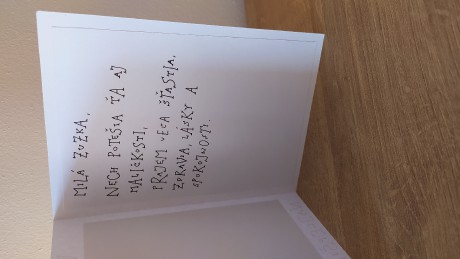 MILÁ ZUZKA,
NECH POTEŠIA ŤA AJ
MALIČKOSTI,
PRAJEM VEĽA ŠŤASTIA,
ZDRAVIA, LÁSKY A
SPOKOJNOSTI.